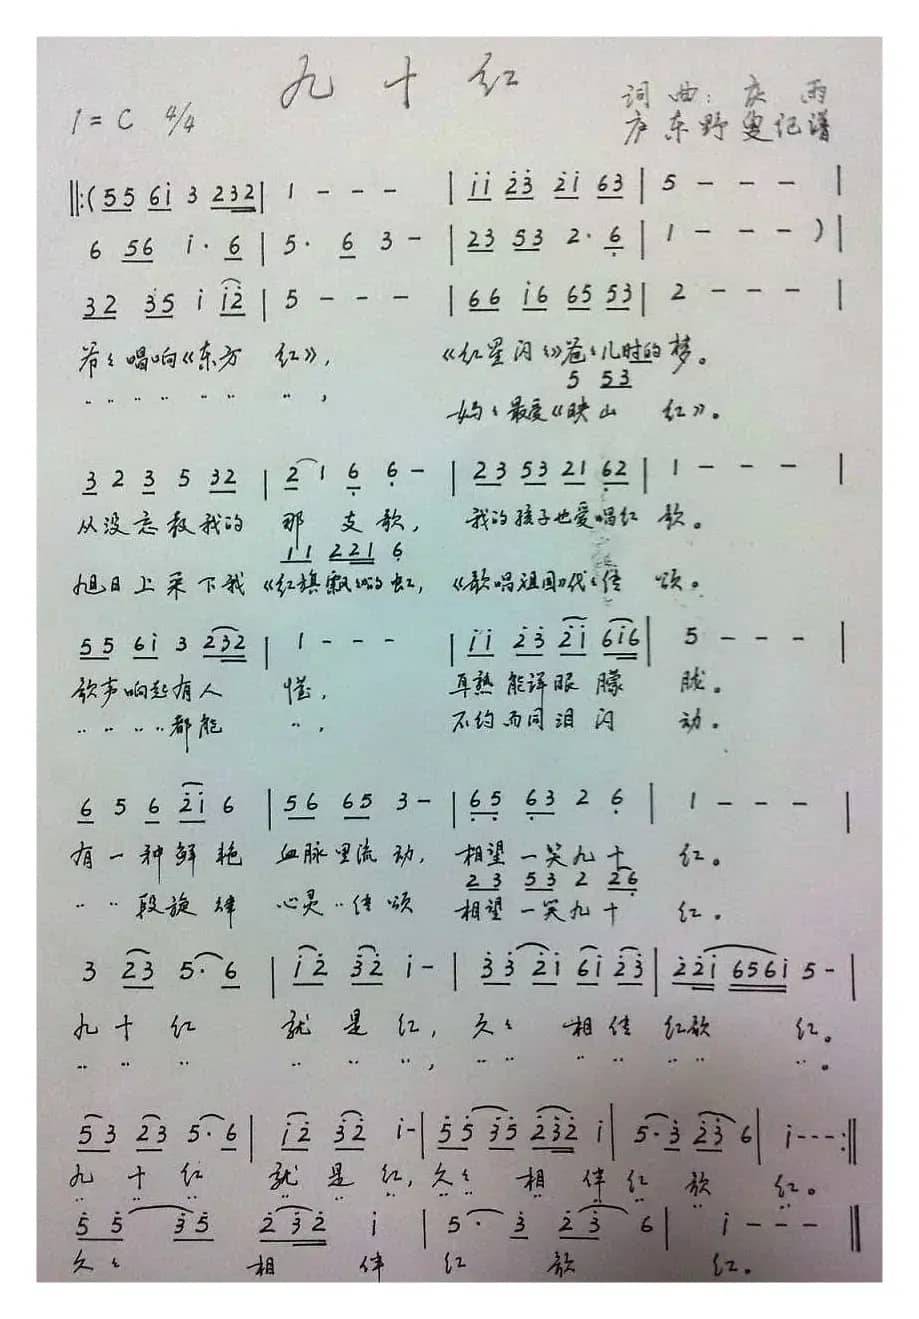 九十红
词曲：庆雨
1=C 4/4
庐东野叟记谱
‖:(55 6i 3 232 | 1 - - - | ii 23 2i 63 | 5 - - - |
6 56 i· 6 | 5· 6 3 - | 23 53 2· 6 | 1 - - - ) |
32 35 i i2 | 5 - - - | 66 i6 65 53 | 2 - - - |
爷〻唱响《东方 红》， 《红星闪〻》爸〻儿时的梦。
5 53
〃〃〃〃〃〃〃， 妈〻最爱《映山 红》。
3 2 3 5 32 | 2 1 6 6 - | 23 53 21 62 | 1 - - - |
从没忘教我的 那 支歌， 我的孩子也爱唱红 歌。
11 221 6
旭日上采下我《红旗飘〻》的虹， 《歌唱祖国》代〻传 颂。
55 6i 3 232 | 1 - - - | ii 23 2i 6i6 | 5 - - - |
歌声响起有人 懂， 耳熟能详眼 朦 胧。
〃〃〃〃都能 〃， 不约而同泪闪 动。
6 5 6 2i 6 | 56 65 3 - | 65 63 2 6 | 1 - - - |
有一种鲜艳 血脉里流动， 相望一笑九十 红。
23 53 2 26
〃〃段旋律 心灵〃传颂 相望一笑九十 红。
3 23 5· 6 | i2 32 i - | 33 2i 6i 23 | 22i 656i 5 - |
九十红 就是红， 久〻 相传红歌 红。
〃〃〃 〃〃〃， 〃〃 〃〃〃〃 〃。
53 23 5· 6 | i2 32 i - | 55 35 232 i | 5· 3 23 6 | i - - - :‖
九十红 就是红， 久〻 相伴红歌 红。
55 35 232 i | 5· 3 23 6 | i - - - ‖
久〻 相 伴 红 歌 红。